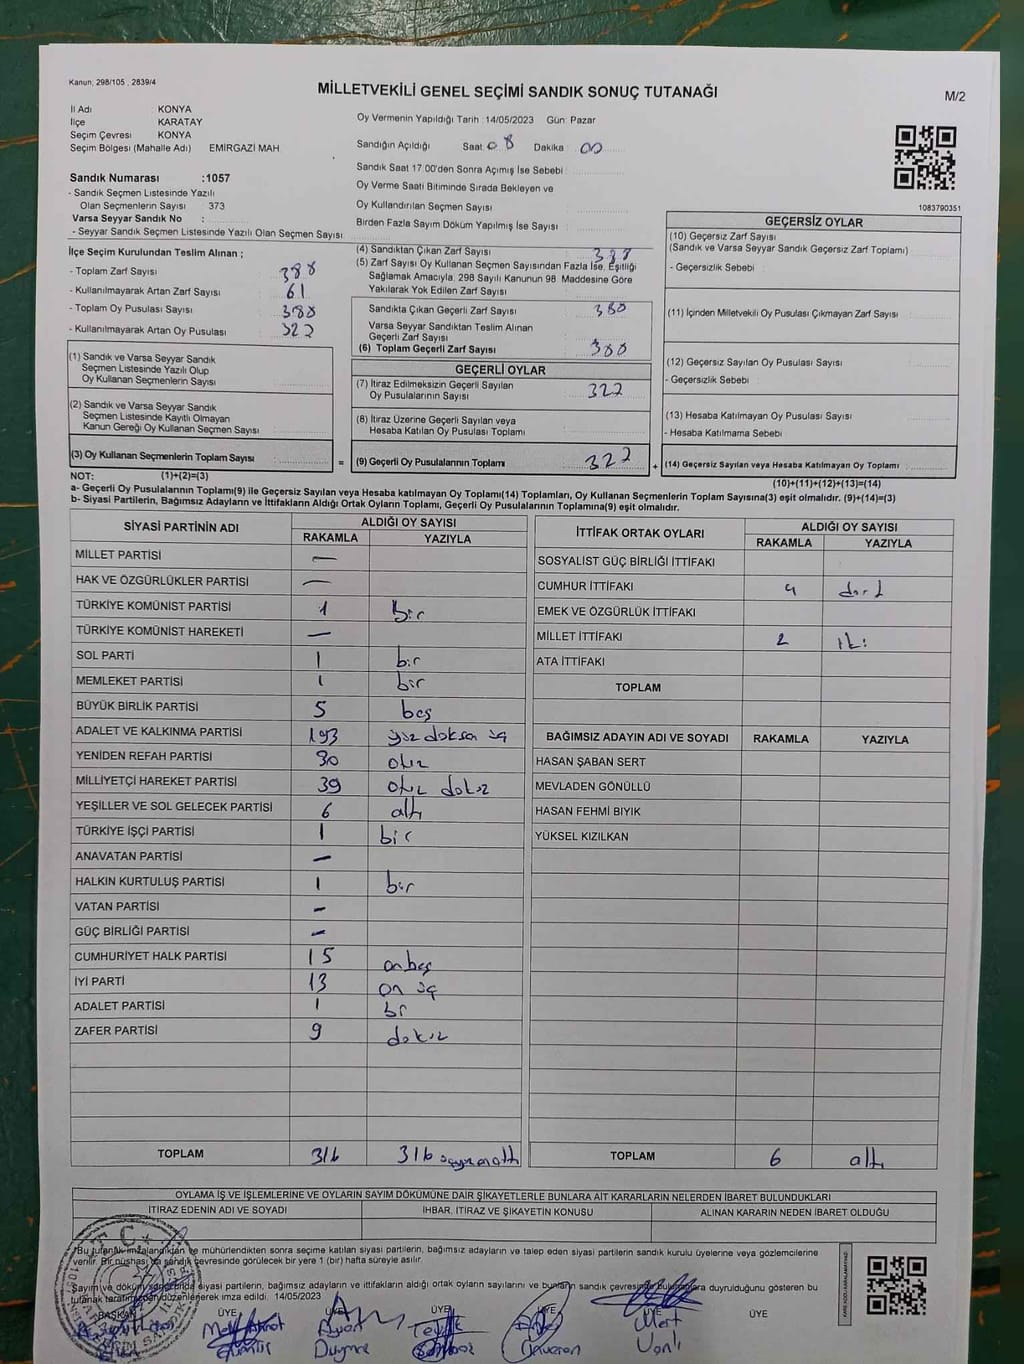 Kanun, 298/105 , 2839/4
MİLLETVEKİLİ GENEL SEÇİMİ SANDIK SONUÇ TUTANAĞI
M/2
İl Adı KONYA
İlçe KARATAY
Seçim Çevresi KONYA
Seçim Bölgesi (Mahalle Adı) EMİRGAZİ MAH
Sandık Numarası :1057
- Sandık Seçmen Listesinde Yazılı
Olan Seçmenlerin Sayısı 373
Varsa Seyyar Sandık No :
- Seyyar Sandık Seçmen Listesinde Yazılı Olan Seçmen Sayısı
Oy Vermenin Yapıldığı Tarih :14/05/2023 Gün: Pazar
Sandığın Açıldığı Saat 08 Dakika 00
Sandık Saat 17:00'den Sonra Açımış İse Sebebi
Oy Verme Saati Bitiminde Sırada Bekleyen ve
Oy Kullandırılan Seçmen Sayısı
Birden Fazla Sayım Döküm Yapılmış İse Sayısı
1083790351
İlçe Seçim Kurulundan Teslim Alınan ;
- Toplam Zarf Sayısı 388
- Kullanılmayarak Artan Zarf Sayısı 61
- Toplam Oy Pusulası Sayısı 380
- Kullanılmayarak Artan Oy Pusulası 322
(1) Sandık ve Varsa Seyyar Sandık
Seçmen Listesinde Yazılı Olup
Oy Kullanan Seçmenlerin Sayısı
(2) Sandık ve Varsa Seyyar Sandık
Seçmen Listesinde Kayıtlı Olmayan
Kanun Gereği Oy Kullanan Seçmen Sayısı
(3) Oy Kullanan Seçmenlerin Toplam Sayısı
=
(4) Sandıktan Çıkan Zarf Sayısı 388
(5) Zarf Sayısı Oy Kullanan Seçmen Sayısından Fazla İse, Eşitliği
Sağlamak Amacıyla, 298 Sayılı Kanunun 98 Maddesine Göre
Yakılarak Yok Edilen Zarf Sayısı
Sandıkta Çıkan Geçerli Zarf Sayısı 380
Varsa Seyyar Sandıktan Teslim Alınan
Geçerli Zarf Sayısı
(6) Toplam Geçerli Zarf Sayısı 380
GEÇERLİ OYLAR
(7) İtiraz Edilmeksizin Geçerli Sayılan
Oy Pusulalarının Sayısı 322
(8) İtiraz Üzerine Geçerli Sayılan veya
Hesaba Katılan Oy Pusulası Toplamı
(9) Geçerli Oy Pusulalarının Toplamı 322
+
GEÇERSİZ OYLAR
(10) Geçersiz Zarf Sayısı
(Sandık ve Varsa Seyyar Sandık Geçersiz Zarf Toplamı)
- Geçersizlik Sebebi
(11) İçinden Milletvekili Oy Pusulası Çıkmayan Zarf Sayısı
(12) Geçersiz Sayılan Oy Pusulası Sayısı
- Geçersizlik Sebebi
(13) Hesaba Katılmayan Oy Pusulası Sayısı
- Hesaba Katılmama Sebebi
(14) Geçersiz Sayılan veya Hesaba Katılmayan Oy Toplamı
NOT: (1)+(2)=(3)
(10)+(11)+(12)+(13)=(14)
a- Geçerli Oy Pusulalarının Toplamı(9) ile Geçersiz Sayılan veya Hesaba katılmayan Oy Toplamı(14) Toplamları, Oy Kullanan Seçmenlerin Toplam Sayısına(3) eşit olmalıdır. (9)+(14)=(3)
b- Siyasi Partilerin, Bağımsız Adayların ve İttifakların Aldığı Ortak Oyların Toplamı, Geçerli Oy Pusulalarının Toplamına(9) eşit olmalıdır.
SİYASİ PARTİNİN ADI ALDIĞI OY SAYISI
RAKAMLA YAZIYLA
MİLLET PARTİSİ —
HAK VE ÖZGÜRLÜKLER PARTİSİ —
TÜRKİYE KOMÜNİST PARTİSİ 1 bir
TÜRKİYE KOMÜNİST HAREKETİ —
SOL PARTİ 1 bir
MEMLEKET PARTİSİ 1 bir
BÜYÜK BİRLİK PARTİSİ 5 beş
ADALET VE KALKINMA PARTİSİ 193 yüz doksan üç
YENİDEN REFAH PARTİSİ 30 otuz
MİLLİYETÇİ HAREKET PARTİSİ 39 otuz dokuz
YEŞİLLER VE SOL GELECEK PARTİSİ 6 altı
TÜRKİYE İŞÇİ PARTİSİ 1 bir
ANAVATAN PARTİSİ —
HALKIN KURTULUŞ PARTİSİ 1 bir
VATAN PARTİSİ —
GÜÇ BİRLİĞİ PARTİSİ —
CUMHURİYET HALK PARTİSİ 15 onbeş
İYİ PARTİ 13 on üç
ADALET PARTİSİ 1 bir
ZAFER PARTİSİ 9 dokuz
TOPLAM 316 316
İTTİFAK ORTAK OYLARI ALDIĞI OY SAYISI
RAKAMLA YAZIYLA
SOSYALİST GÜÇ BİRLİĞİ İTTİFAKI
CUMHUR İTTİFAKI 4 dört
EMEK VE ÖZGÜRLÜK İTTİFAKI
MİLLET İTTİFAKI 2 iki
ATA İTTİFAKI
TOPLAM
BAĞIMSIZ ADAYIN ADI VE SOYADI RAKAMLA YAZIYLA
HASAN ŞABAN SERT
MEVLADEN GÖNÜLLÜ
HASAN FEHMİ BIYIK
YÜKSEL KIZILKAN
TOPLAM 6 altı
OYLAMA İŞ VE İŞLEMLERİNE VE OYLARIN SAYIM DÖKÜMÜNE DAİR ŞİKAYETLERLE BUNLARA AİT KARARLARIN NELERDEN İBARET BULUNDUKLARI
İTİRAZ EDENİN ADI VE SOYADI İHBAR, İTİRAZ VE ŞİKAYETİN KONUSU ALINAN KARARIN NEDEN İBARET OLDUĞU
Bu tutanak imzalandıktan ve mühürlendikten sonra seçime katılan siyasi partilerin, bağımsız adayların ve talep eden siyasi partilerin sandık kurulu üyelerine veya gözlemcilerine
verilir. Bir nüshası da sandık çevresinde görülecek bir yere 1 (bir) hafta süreyle asılır.
Sayım ve döküm siyasi partilerin, bağımsız adayların ve ittifakların aldığı ortak oyların sayılarını ve bunların sandık çevresinde bulunanlara duyrulduğunu gösteren bu
tutanak tarafımızdan düzenlenerek imza edildi. 14/05/2023
BAŞKAN ÜYE ÜYE ÜYE ÜYE ÜYE ÜYE
Mert